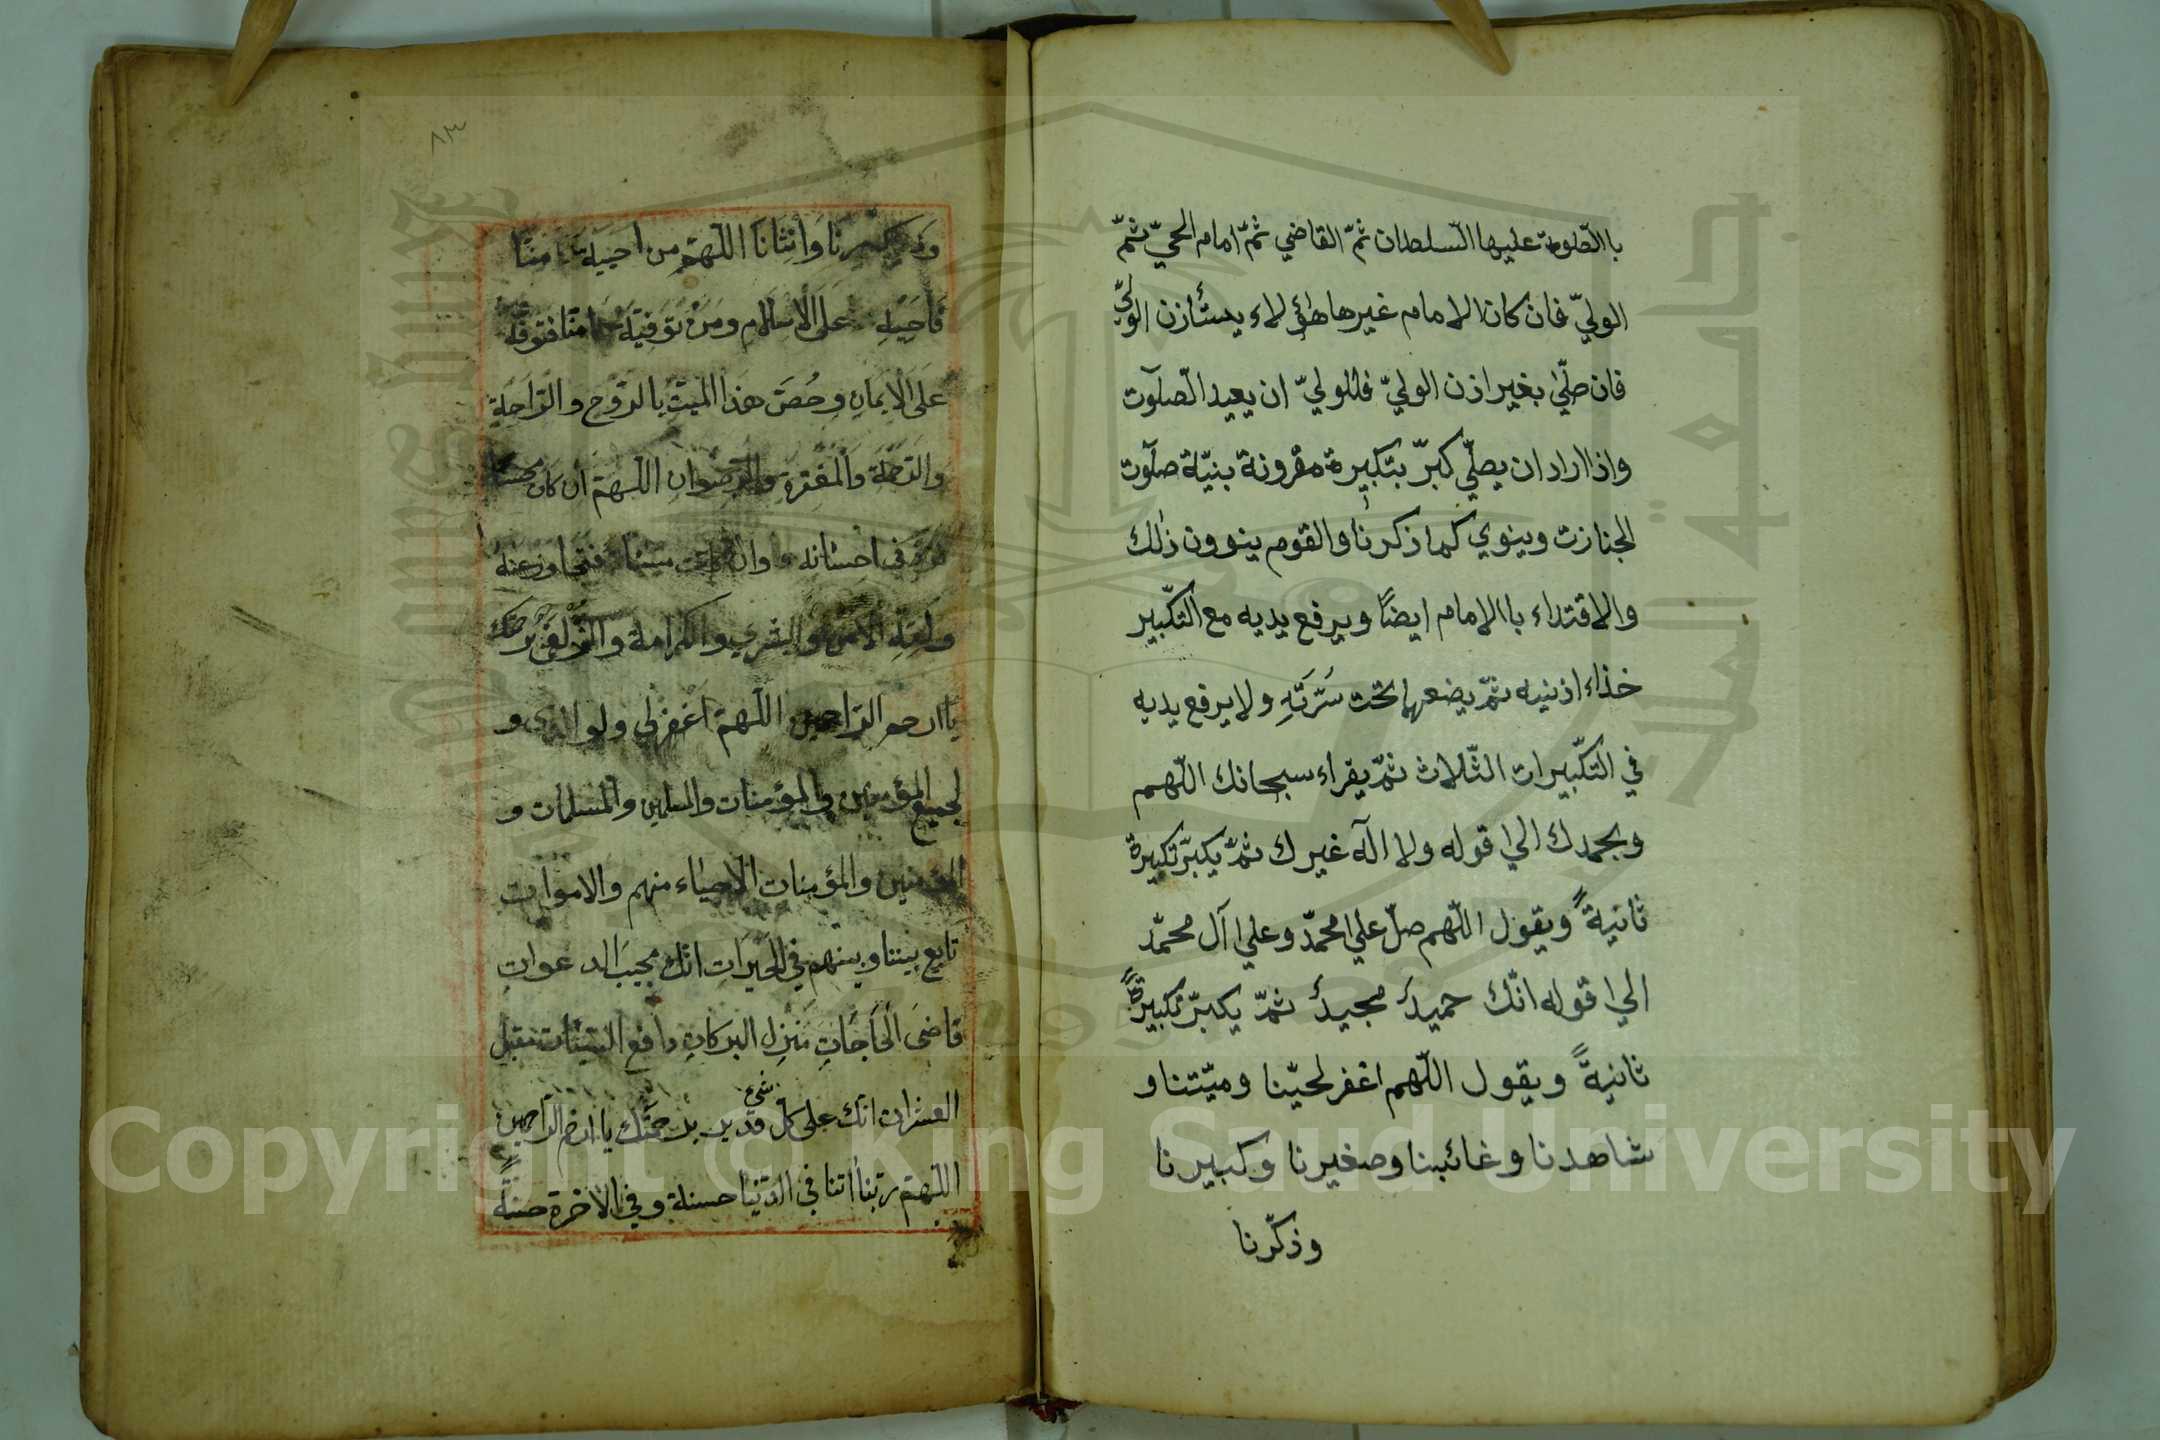 باالصّلوة عليها السّلطان ثمّ القاضي ثمّ امام الحيّ ثمّ
الوليّ فان كان الامام غيرها هٰؤلاء يستأزن الوليّ
فان صلّي بغير اذن الوليّ فللوليّ ان يعيد الصّلآوت
واذا اراد ان يصلّي كبرّ بتكبيرة مقرونة بنيّة صلآوت
الجنازت وينوي كما ذكرنا والقوم ينوون ذٰلك
والاقتداء باالامام ايضًا ويرفع يديه مع التكّبير
خذاء اذنيه ثمّ يضعهما تحت سَرَّتَهِ ولا يرفع يديه
في التكّبيرات الثّلاث ثمّ يقراء سبحانك اللّهم
وبحمدك الي قوله ولا اله غيرك ثمّ يكبرّ تكبيرة
ثانيةً ويقول اللّهم صلّ علي محمّد وعلي آل محمّد
الي قوله انّك حميدٌ مجيدٌ ثمّ يكبرّ تكبيرةً
ثانيةً ويقول اللّهم اغفر لحيّنا وميّتنا و
شاهدنا وغائبنا وصغيرنا وكبيرنا
وذكّرنا
٨٣
وَانثَانَا اللّهمّ من احييته منّا
فَاحيِهِ عَلَى الاِسلام ومَن توفيّته منّا فتوفّه
عَلَى الاِيمَانِ وخُصَّ هَذا الميّت بالرَّوحِ والرّاحةِ
والرّحمَة والمغفِرَةِ والرّضوانِ اللّهمّ ان كان محسنًا
فزد فى احسانه وان كان مسيئا فتجاوز عنه
ولَقِّهِ الاَمن والبشرى والكرامة والزّلفى برحمتك
يا ارحم الرّاحمين اللّهمّ اغفرلى ولوالدى و
لجميع المؤمنين والمؤمنات والمسلمين والمسلمات و
المؤمنين والمؤمنات الاحياء منهم والاموات
تابع بيننا وبينهم في الخيرَات انّك مجيب الدعوات
قاضىَ الحَاجَاتِ منزِل البركاتِ دافع السّيئات مقيل
العثرات انّك على كلّ شيء قدير برحمتك يا ارحم الرّاحمين
اللّهمّ ربّنا اتنا فى الدّنيا حسنة وفى الاخرة حسنةً
جامعة الملك سعود
King Saud University
1957
Copyright © King Saud University